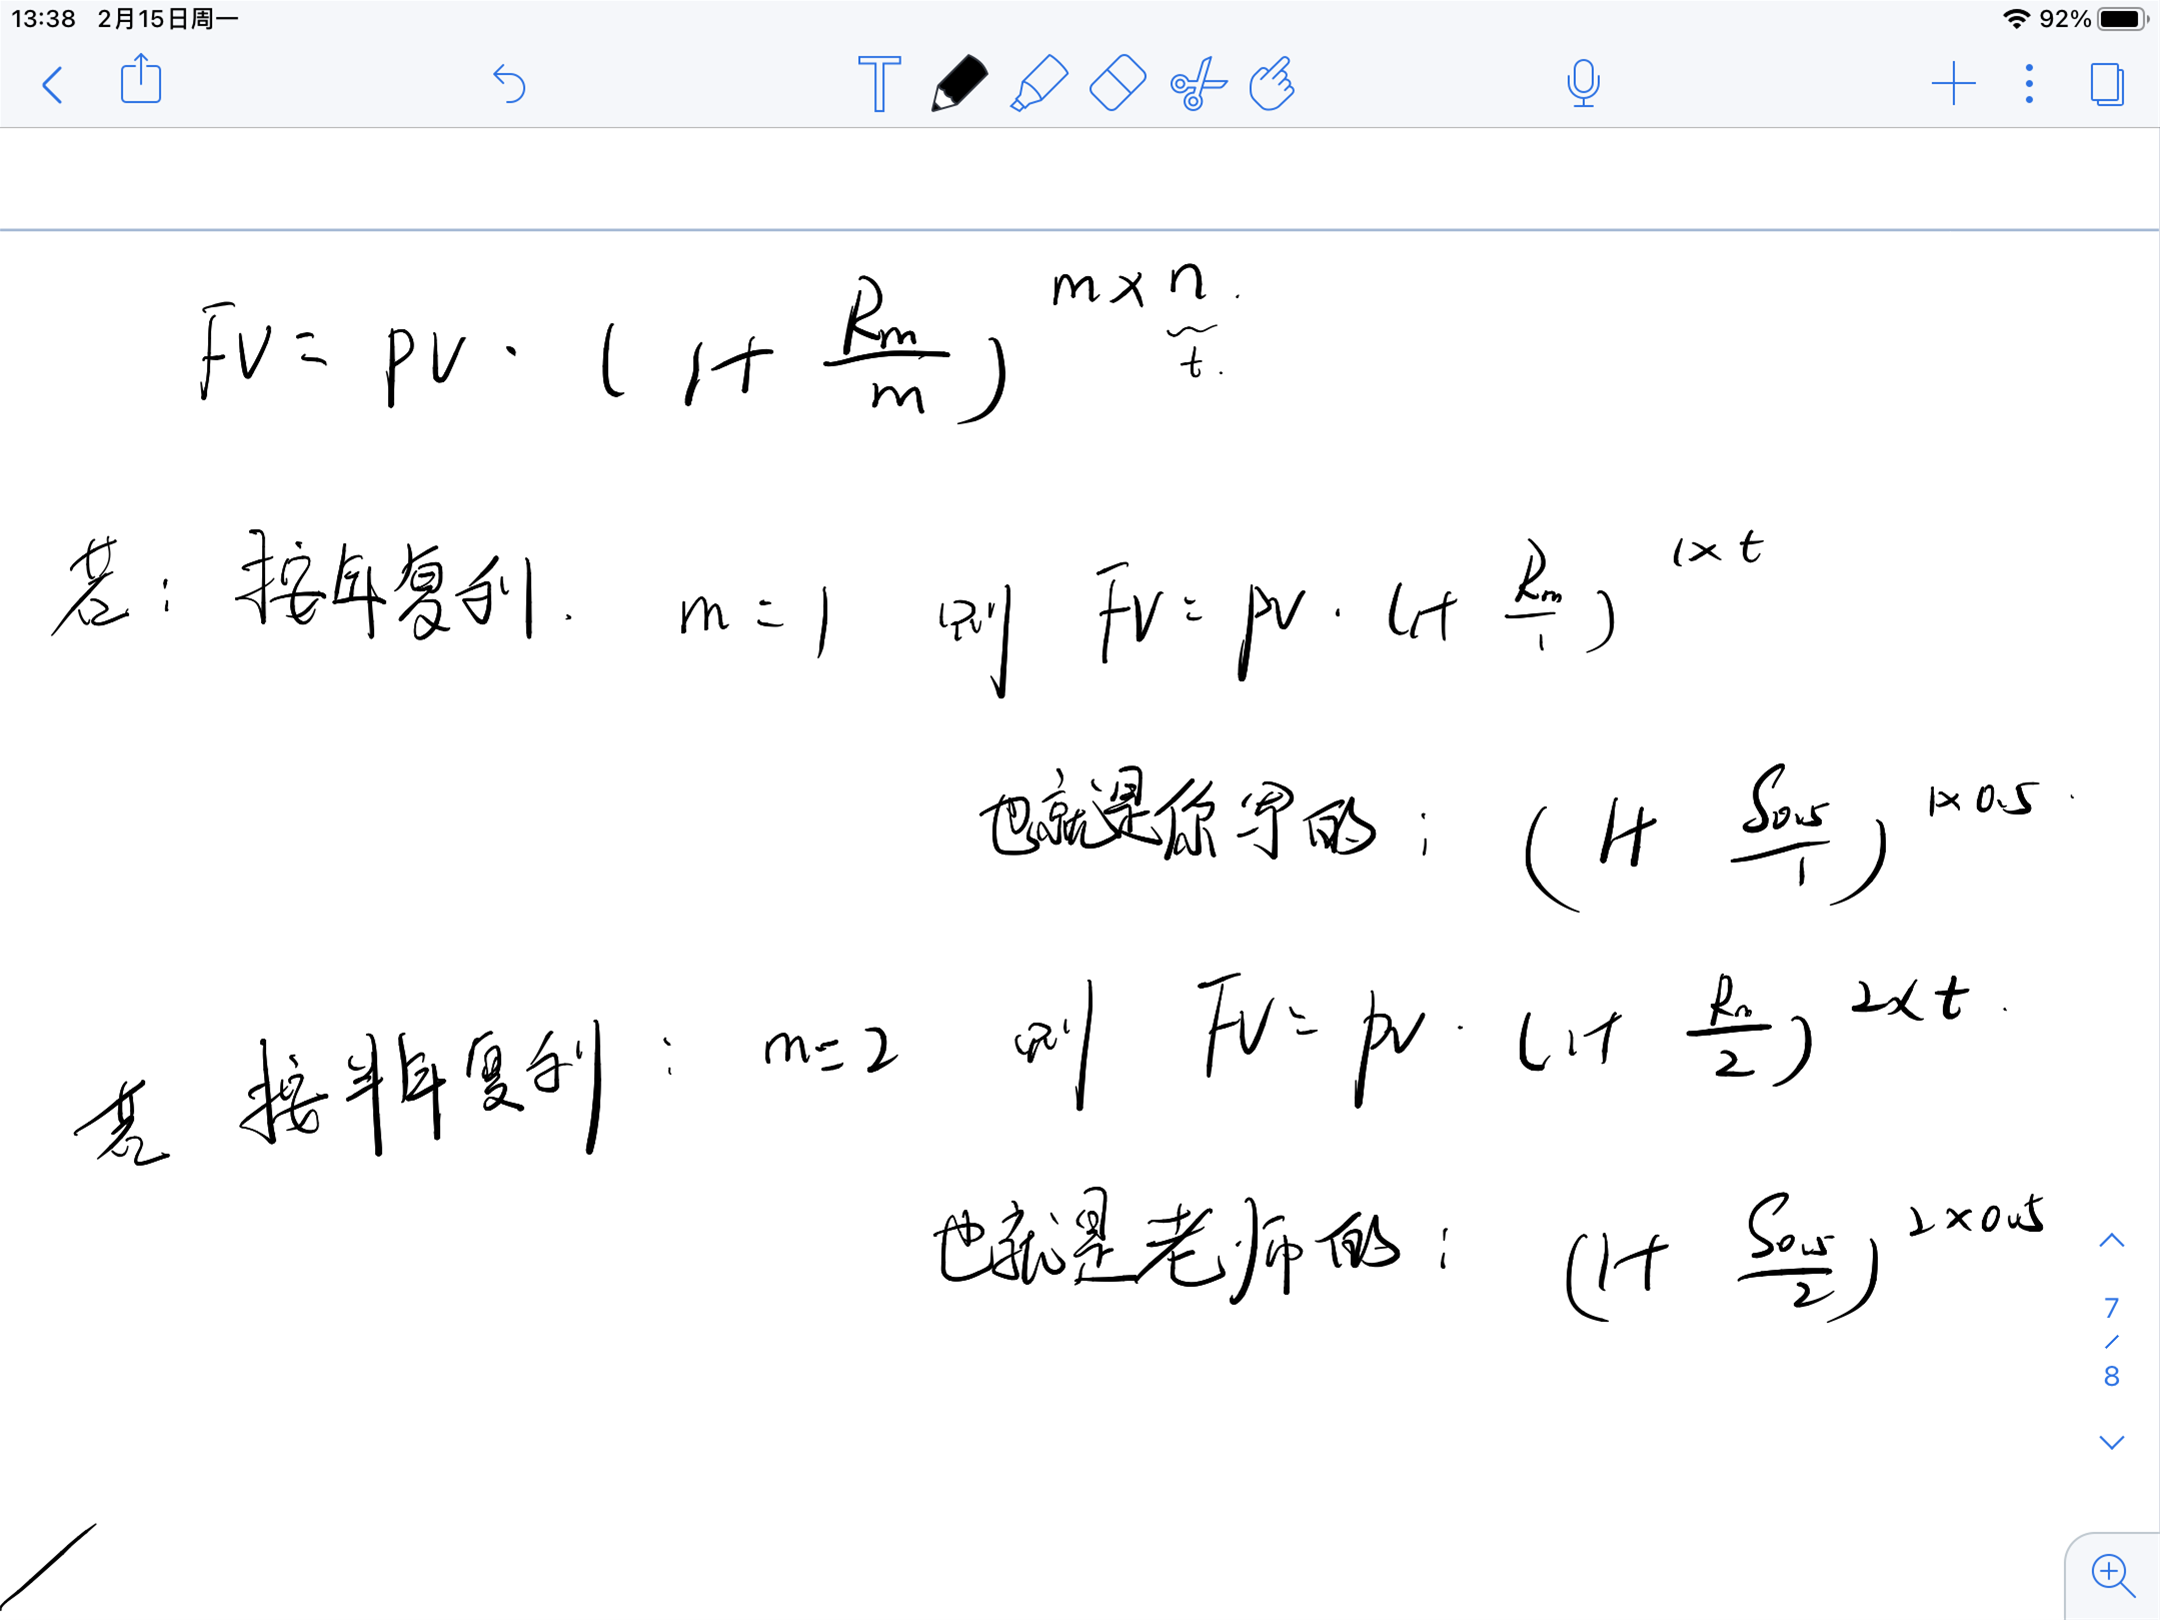 13:38 2月15日周一 92%
FV = PV · (1+ Rm/m)^m×n.
t.
若: 按年复利. m=1 则 FV = PV · (1+ Rm/1)^1×t
也就是你写的: (1+ S0.5/1)^1×0.5.
若 按半年复利: m=2 则 FV = PV · (1+ Rm/2)^2×t.
也就是老师的: (1+ S0.5/2)^2×0.5
7
/
8